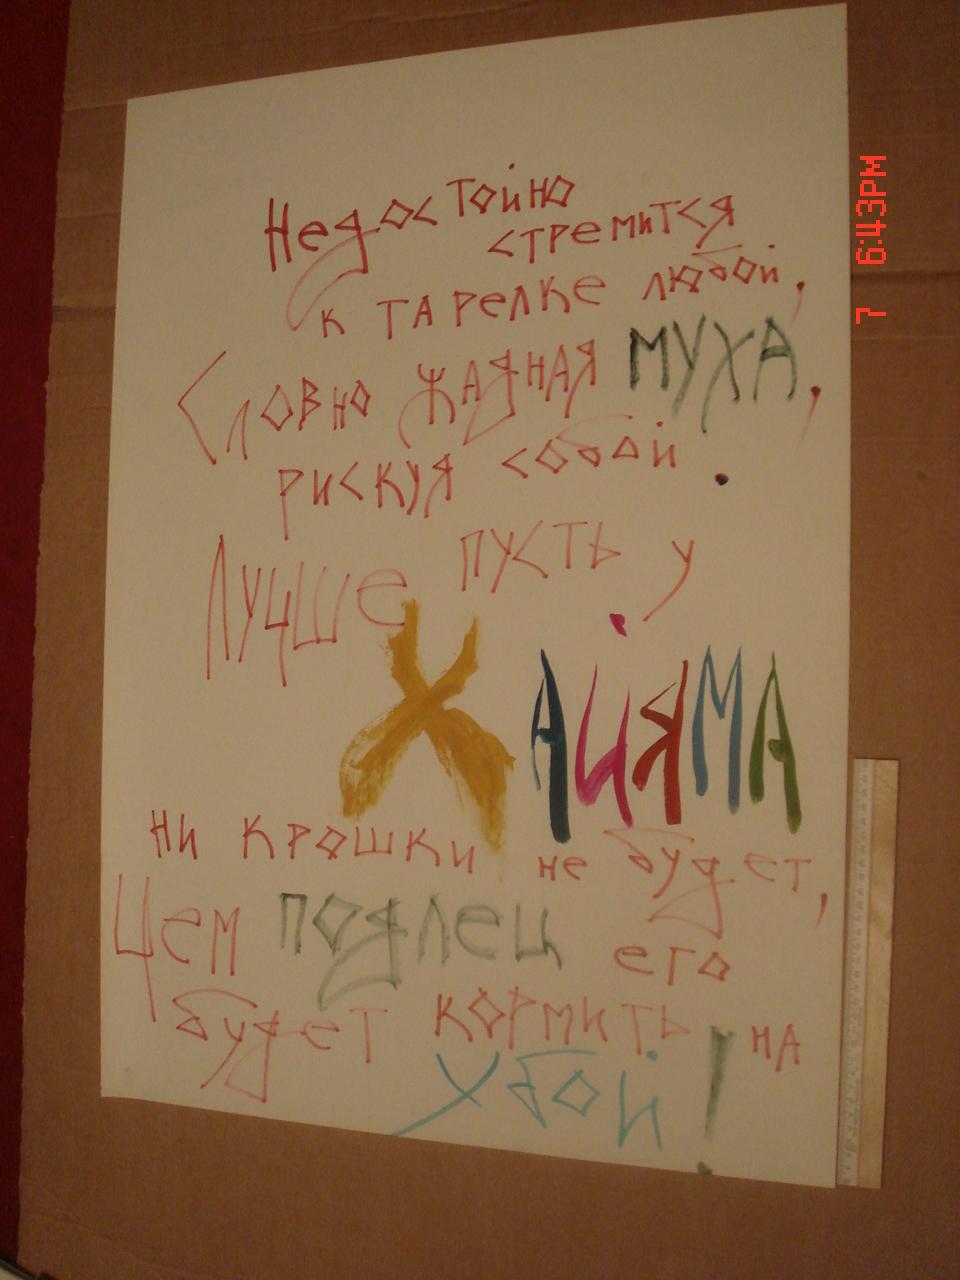 Недостойно
стремится
к тарелке любой,
Словно жадная МУХА,
рискуя собой.
Лучше пусть у
ХАЙЯМА
ни крошки не будет,
Чем подлец его
будет кормить на
убой!
7 6:43PM